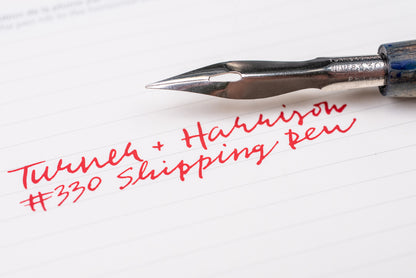 Turner + Harrison
#330 Shipping Pen